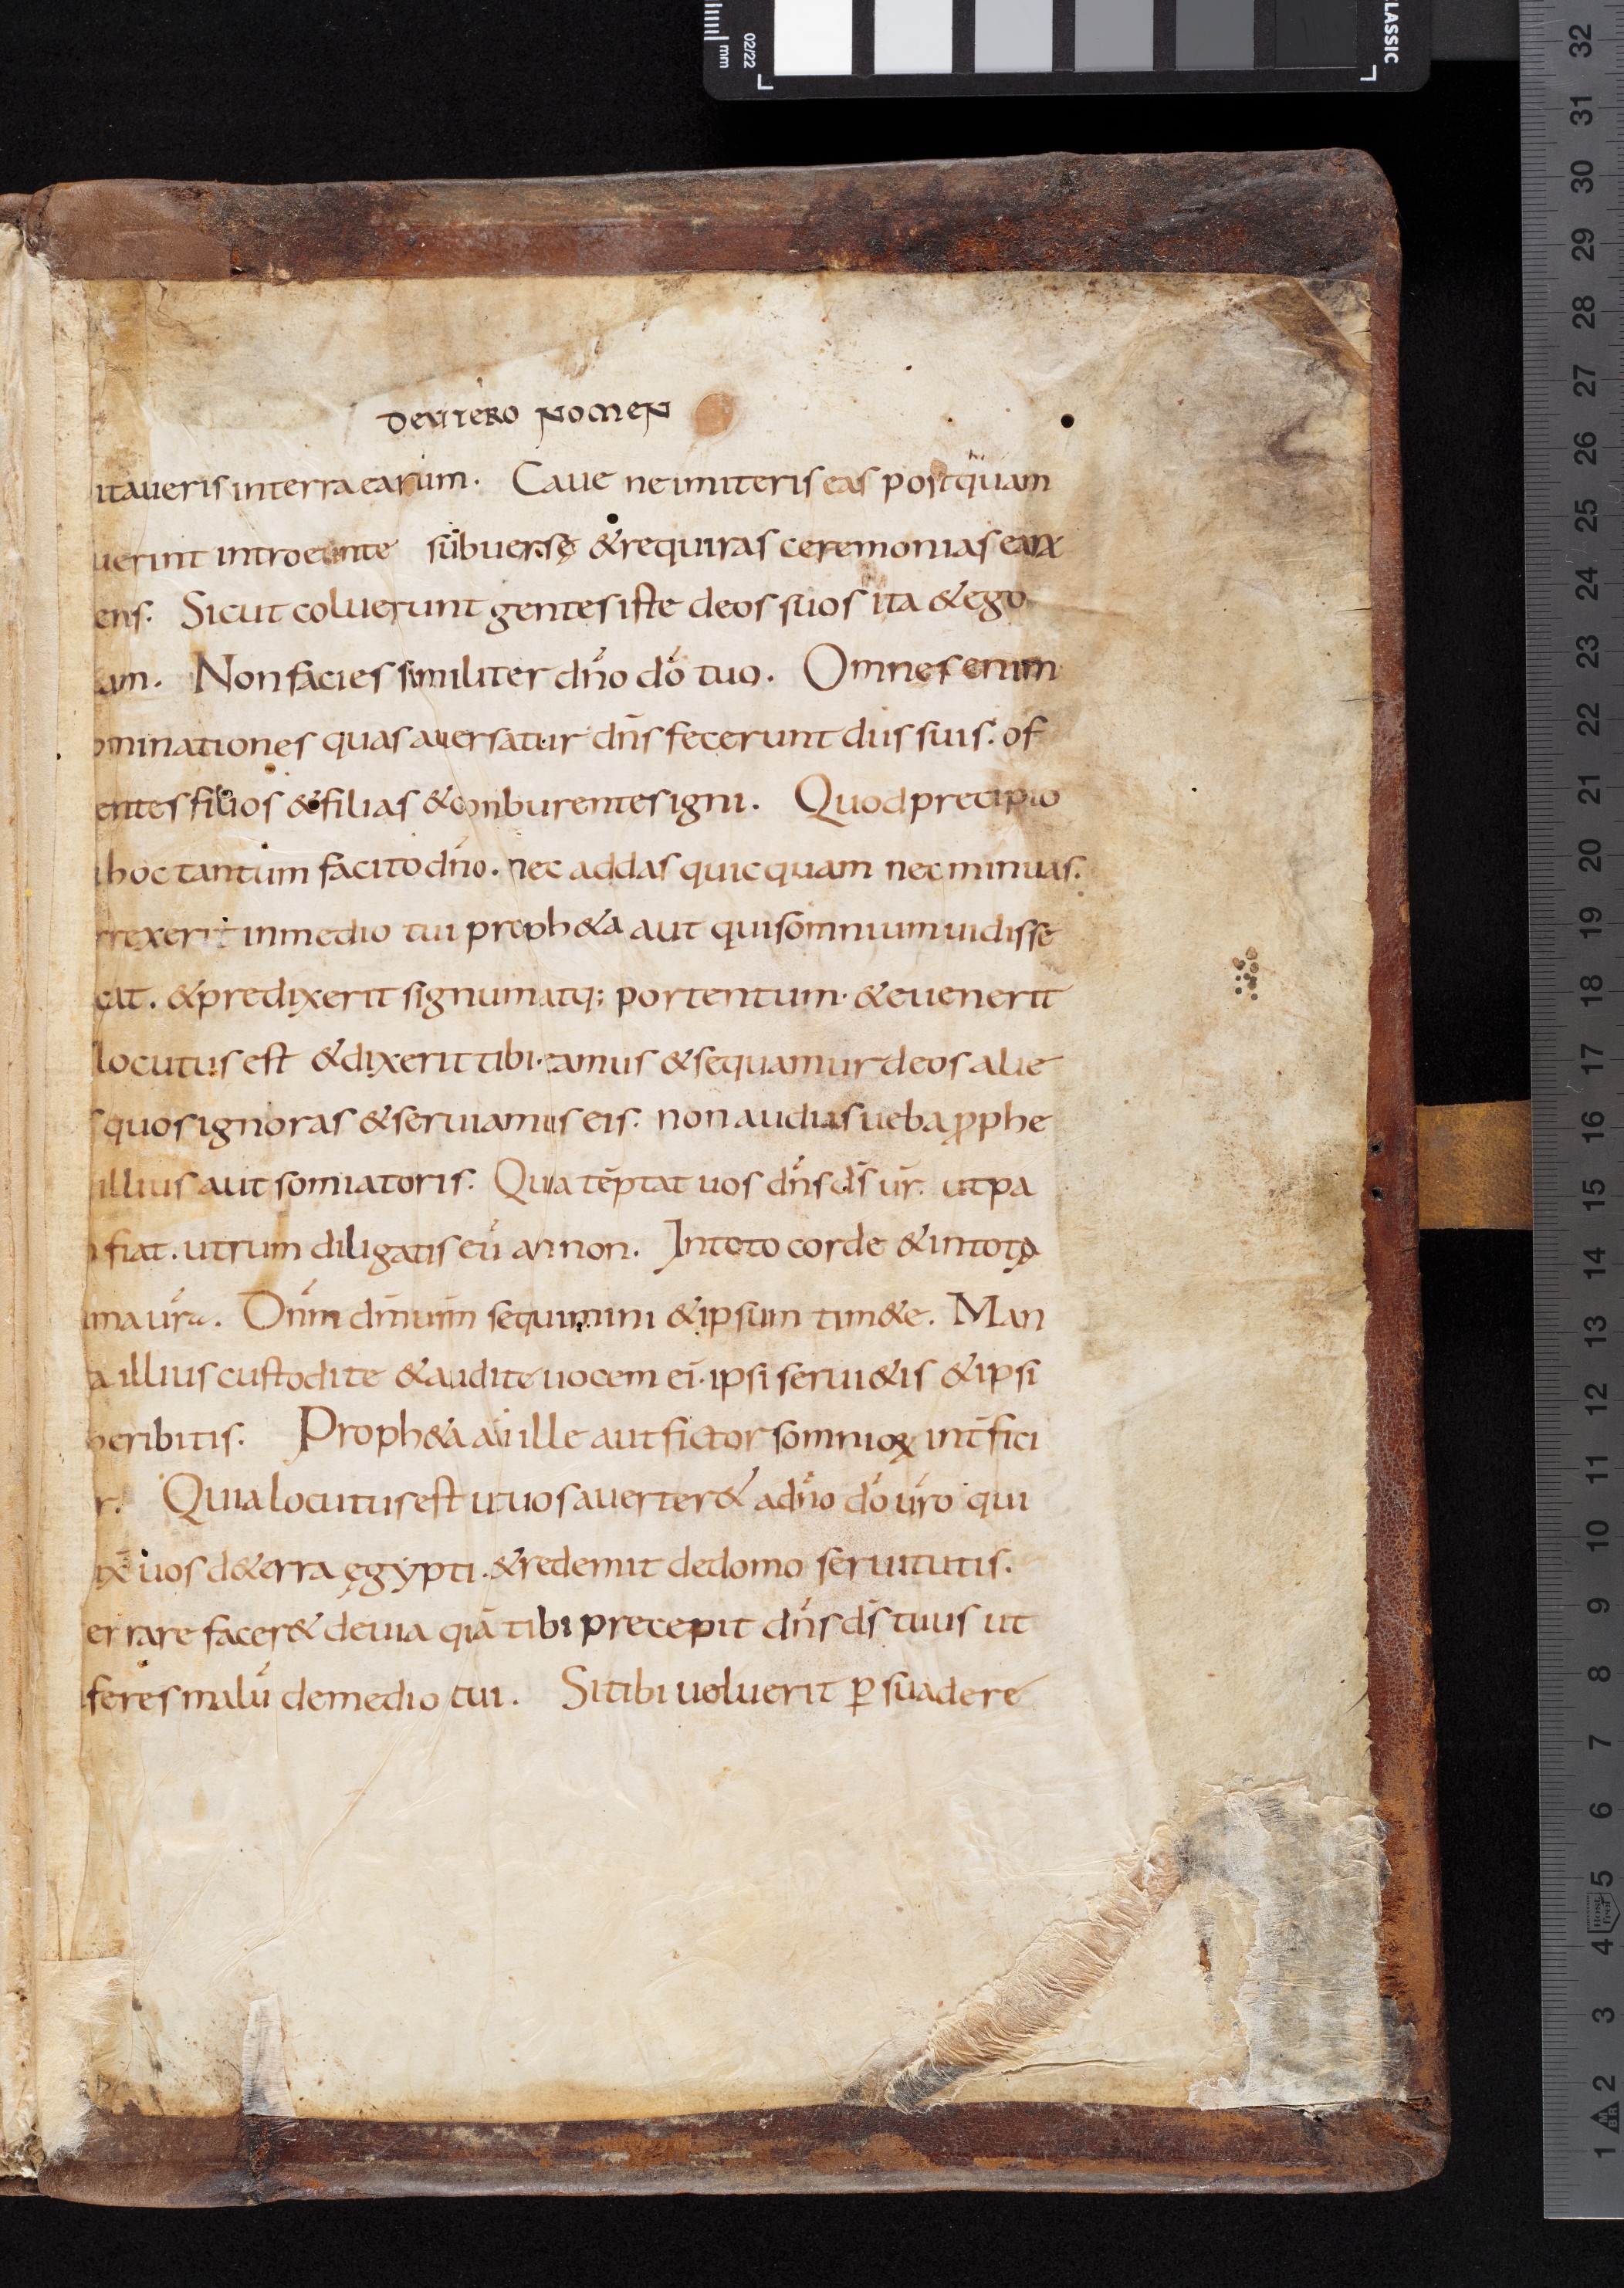 CLASSIC
02/22
mm
DEUTERO NOMEN
itaueris interra earum. Caue neimiteris eas postquam
uerint introeunte subuersę & requiras ceremonias earꝝ
ens. Sicut coluerunt gentes iste deos suos ita & ego
am. Non facies similiter dn̄o dō tuo. Omnes enim
ominationes quas auersatur dn̄s fecerunt diis suis. of
entes filios & filias & conburentes igni. Quod precipio
hoc tantum facito dn̄o. nec addas quicquam nec minuas.
rrexerit inmedio tui proph&a aut qui somnium uidisse
cat. & predixerit signum atq; portentum. & euenerit
locutus est & dixerit tibi. eamus & sequamur deos alie
s quos ignoras & seruiamus eis. non audias ueba ꝓphe
illius aut somiatoris. Quia tēptat uos dn̄s ds̄ ur̄. ut pa
fiat. utrum diligatis eū an non. In toto corde & in totę
ima ur̄a. Dn̄m dm̄ urm̄ sequimini & ipsum tim&e. Man
a illius custodite & audite uocem ei. ipsi serui&is & ipsi
heribitis. Proph&a aū ille aut fictor somnioꝝ int̄fici
r. Quia locutus est ut uos auerter& a dn̄o dō ur̄o qui
ix̄ uos d&erra ęgypti. & redemit de domo seruitutis.
errare facer& deuia qiā tibi precepit dn̄s ds̄ tuus ut
feres malū de medio tui. Si tibi uoluerit ꝑsuadere
32
31
30
29
28
27
26
25
24
23
22
21
20
19
18
17
16
15
14
13
12
11
10
9
8
7
6
5
4
3
2
1